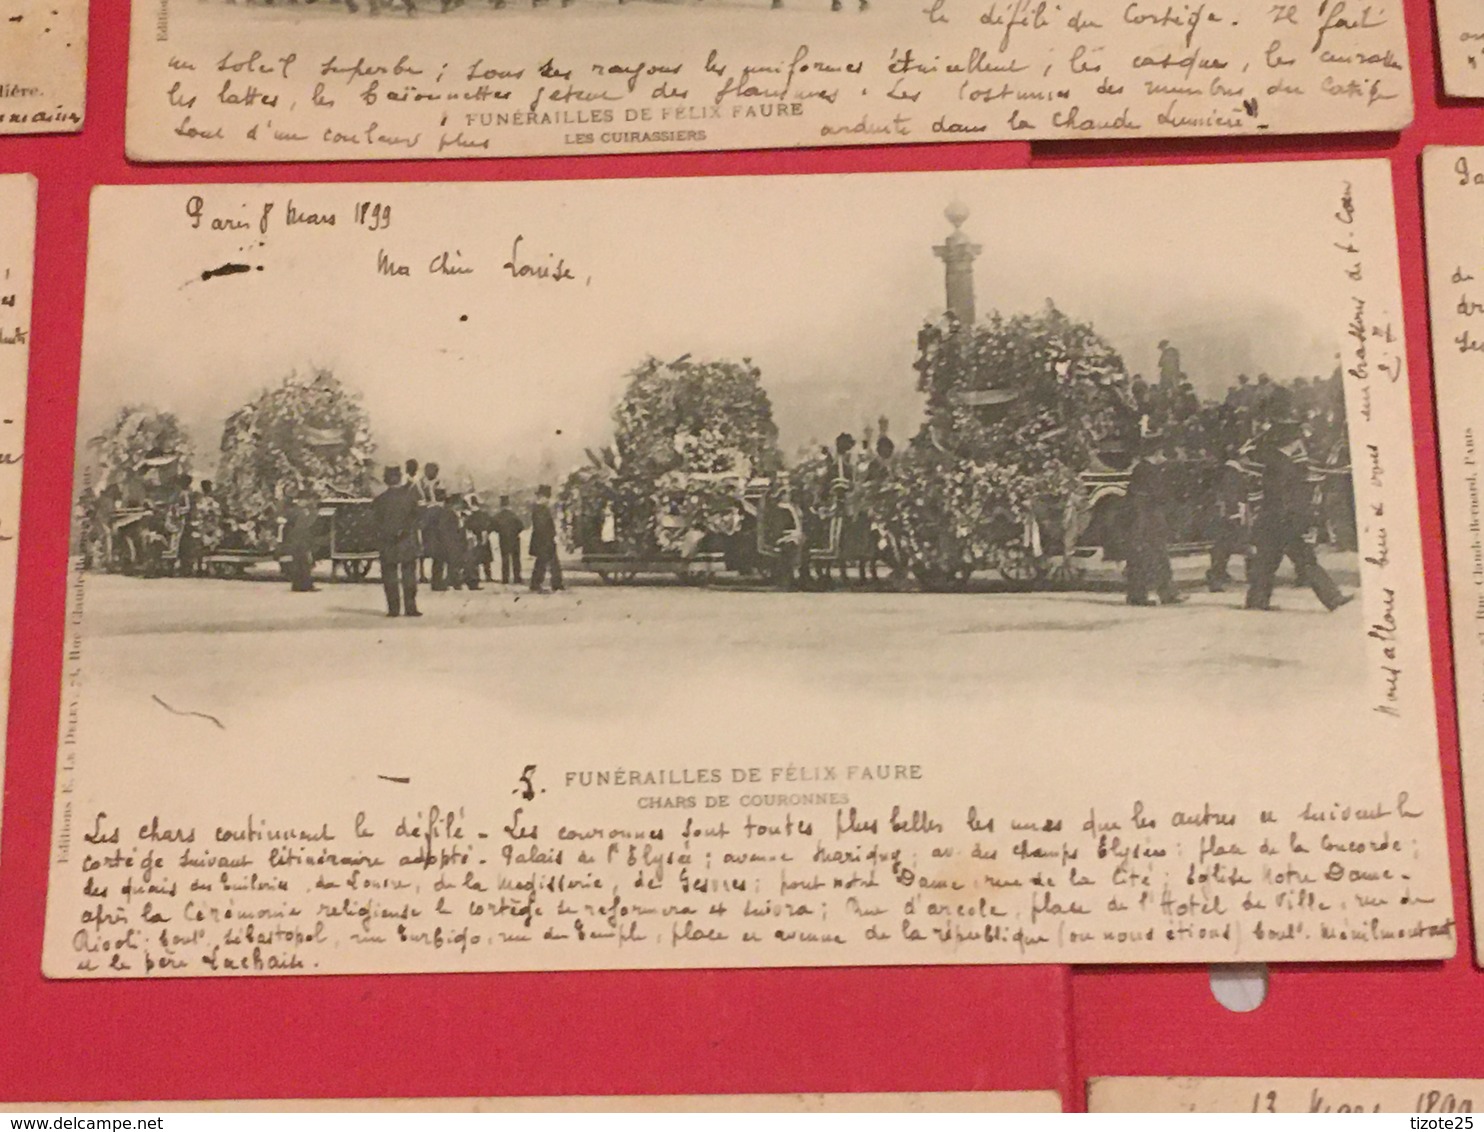 le défilé du Cortège. Il fait
un soleil superbe ; sous ses rayons les uniformes étincellent ; les casques, les cuirasses
les lattes, les baïonnettes jettent des flammes. Les costumes des membres du Cortège
sont d'une couleur plus
FUNÉRAILLES DE FÉLIX FAURE
LES CUIRASSIERS
ardente dans la chaude lumière –
Edition
lière.
Paris 8 Mars 1899
Ma Chère Louise,
Nous allons bien & vous embrassons de t. Cœur
Editions E. Le Deley, 71, Rue Claude-Bernard, Paris
5. FUNÉRAILLES DE FÉLIX FAURE
CHARS DE COURONNES
Les chars continuent le défilé – Les couronnes sont toutes plus belles les unes que les autres et suivent le
cortège suivant l'itinéraire adopté – Palais de l'Elysée ; avenue Marigny ; av. des Champs Elysées ; place de la Concorde ;
des quais des Tuileries, du Louvre, de la Megisserie, de Gesvres ; pont notre Dame, rue de la Cité ; Eglise Notre Dame –
après la Cérémonie religieuse le cortège se reformera et suivra ; Rue d'arcole, place de l'Hotel de Ville, rue de
Rivoli, Boul. Sébastopol, rue Turbigo, rue du Temple, place et avenue de la république (ou nous étions) boul. Menilmontant
et le père Lachaise.
Rue Claude-Bernard, Paris
13 Mars 1899
tizote25